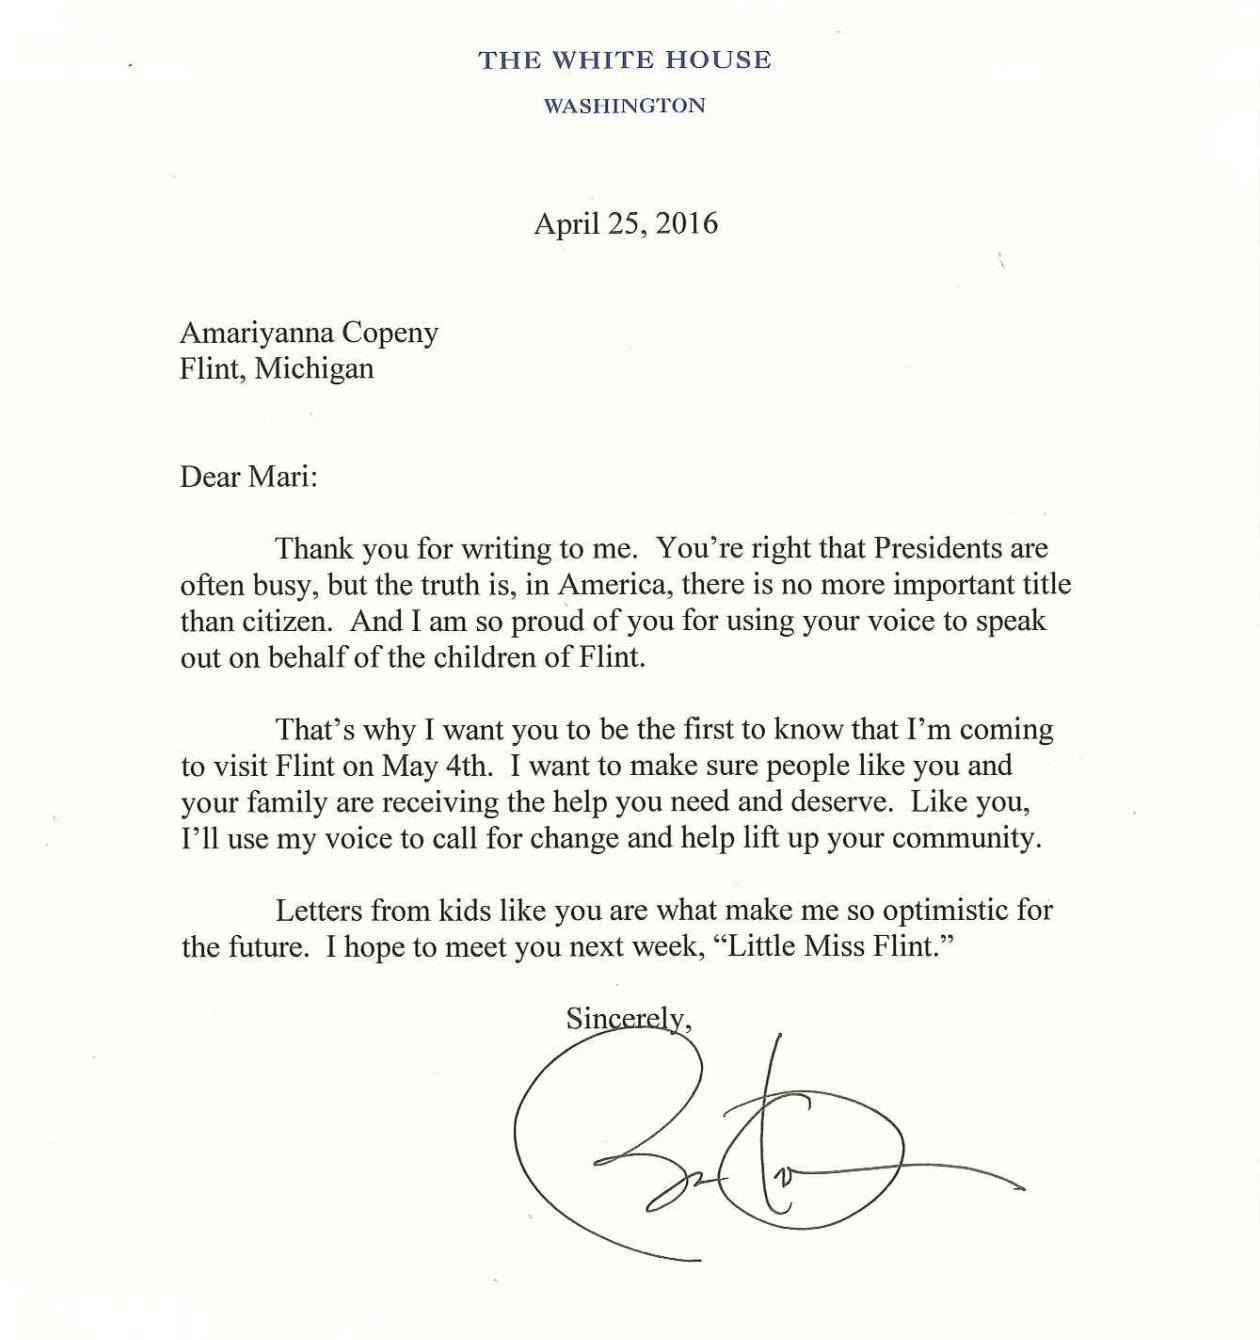 THE WHITE HOUSE
WASHINGTON
April 25, 2016
Amariyanna Copeny
Flint, Michigan
Dear Mari:
Thank you for writing to me.  You’re right that Presidents are
often busy, but the truth is, in America, there is no more important title
than citizen.  And I am so proud of you for using your voice to speak
out on behalf of the children of Flint.
That’s why I want you to be the first to know that I’m coming
to visit Flint on May 4th.  I want to make sure people like you and
your family are receiving the help you need and deserve.  Like you,
I’ll use my voice to call for change and help lift up your community.
Letters from kids like you are what make me so optimistic for
the future.  I hope to meet you next week, “Little Miss Flint.”
Sincerely,